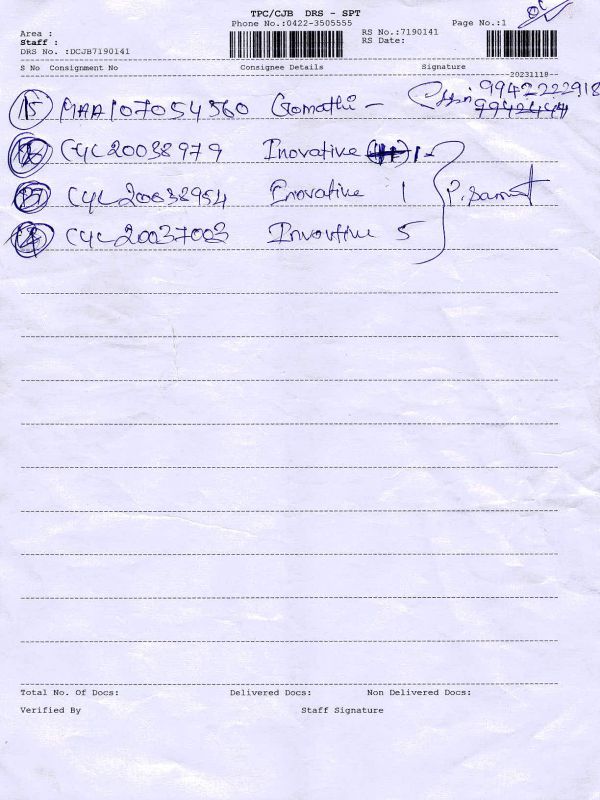 TPC/CJB DRS - SPT
Phone No.:0422-3505555 Page No.:1
Area : RS No.:7190141
Staff : RS Date:
DRS No. :DCJB7190141
S No Consignment No Consignee Details Signature
20231118
15 MAA107054560 Gomathi - 9942222918
CYC20038979 Inovative 1-
CYC20038954 Enovative 1
CYC20037003 5
Total No. Of Docs: Delivered Docs: Non Delivered Docs:
Verified By Staff Signature